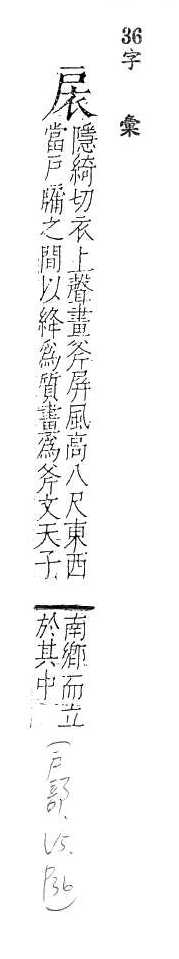 36字 彙
扆
隱綺切衣上聲畫斧屏風高八尺東西
當戶牖之間以絳為質畫為斧文天子
南鄉而立
於其中
(戶部. V5. P36)